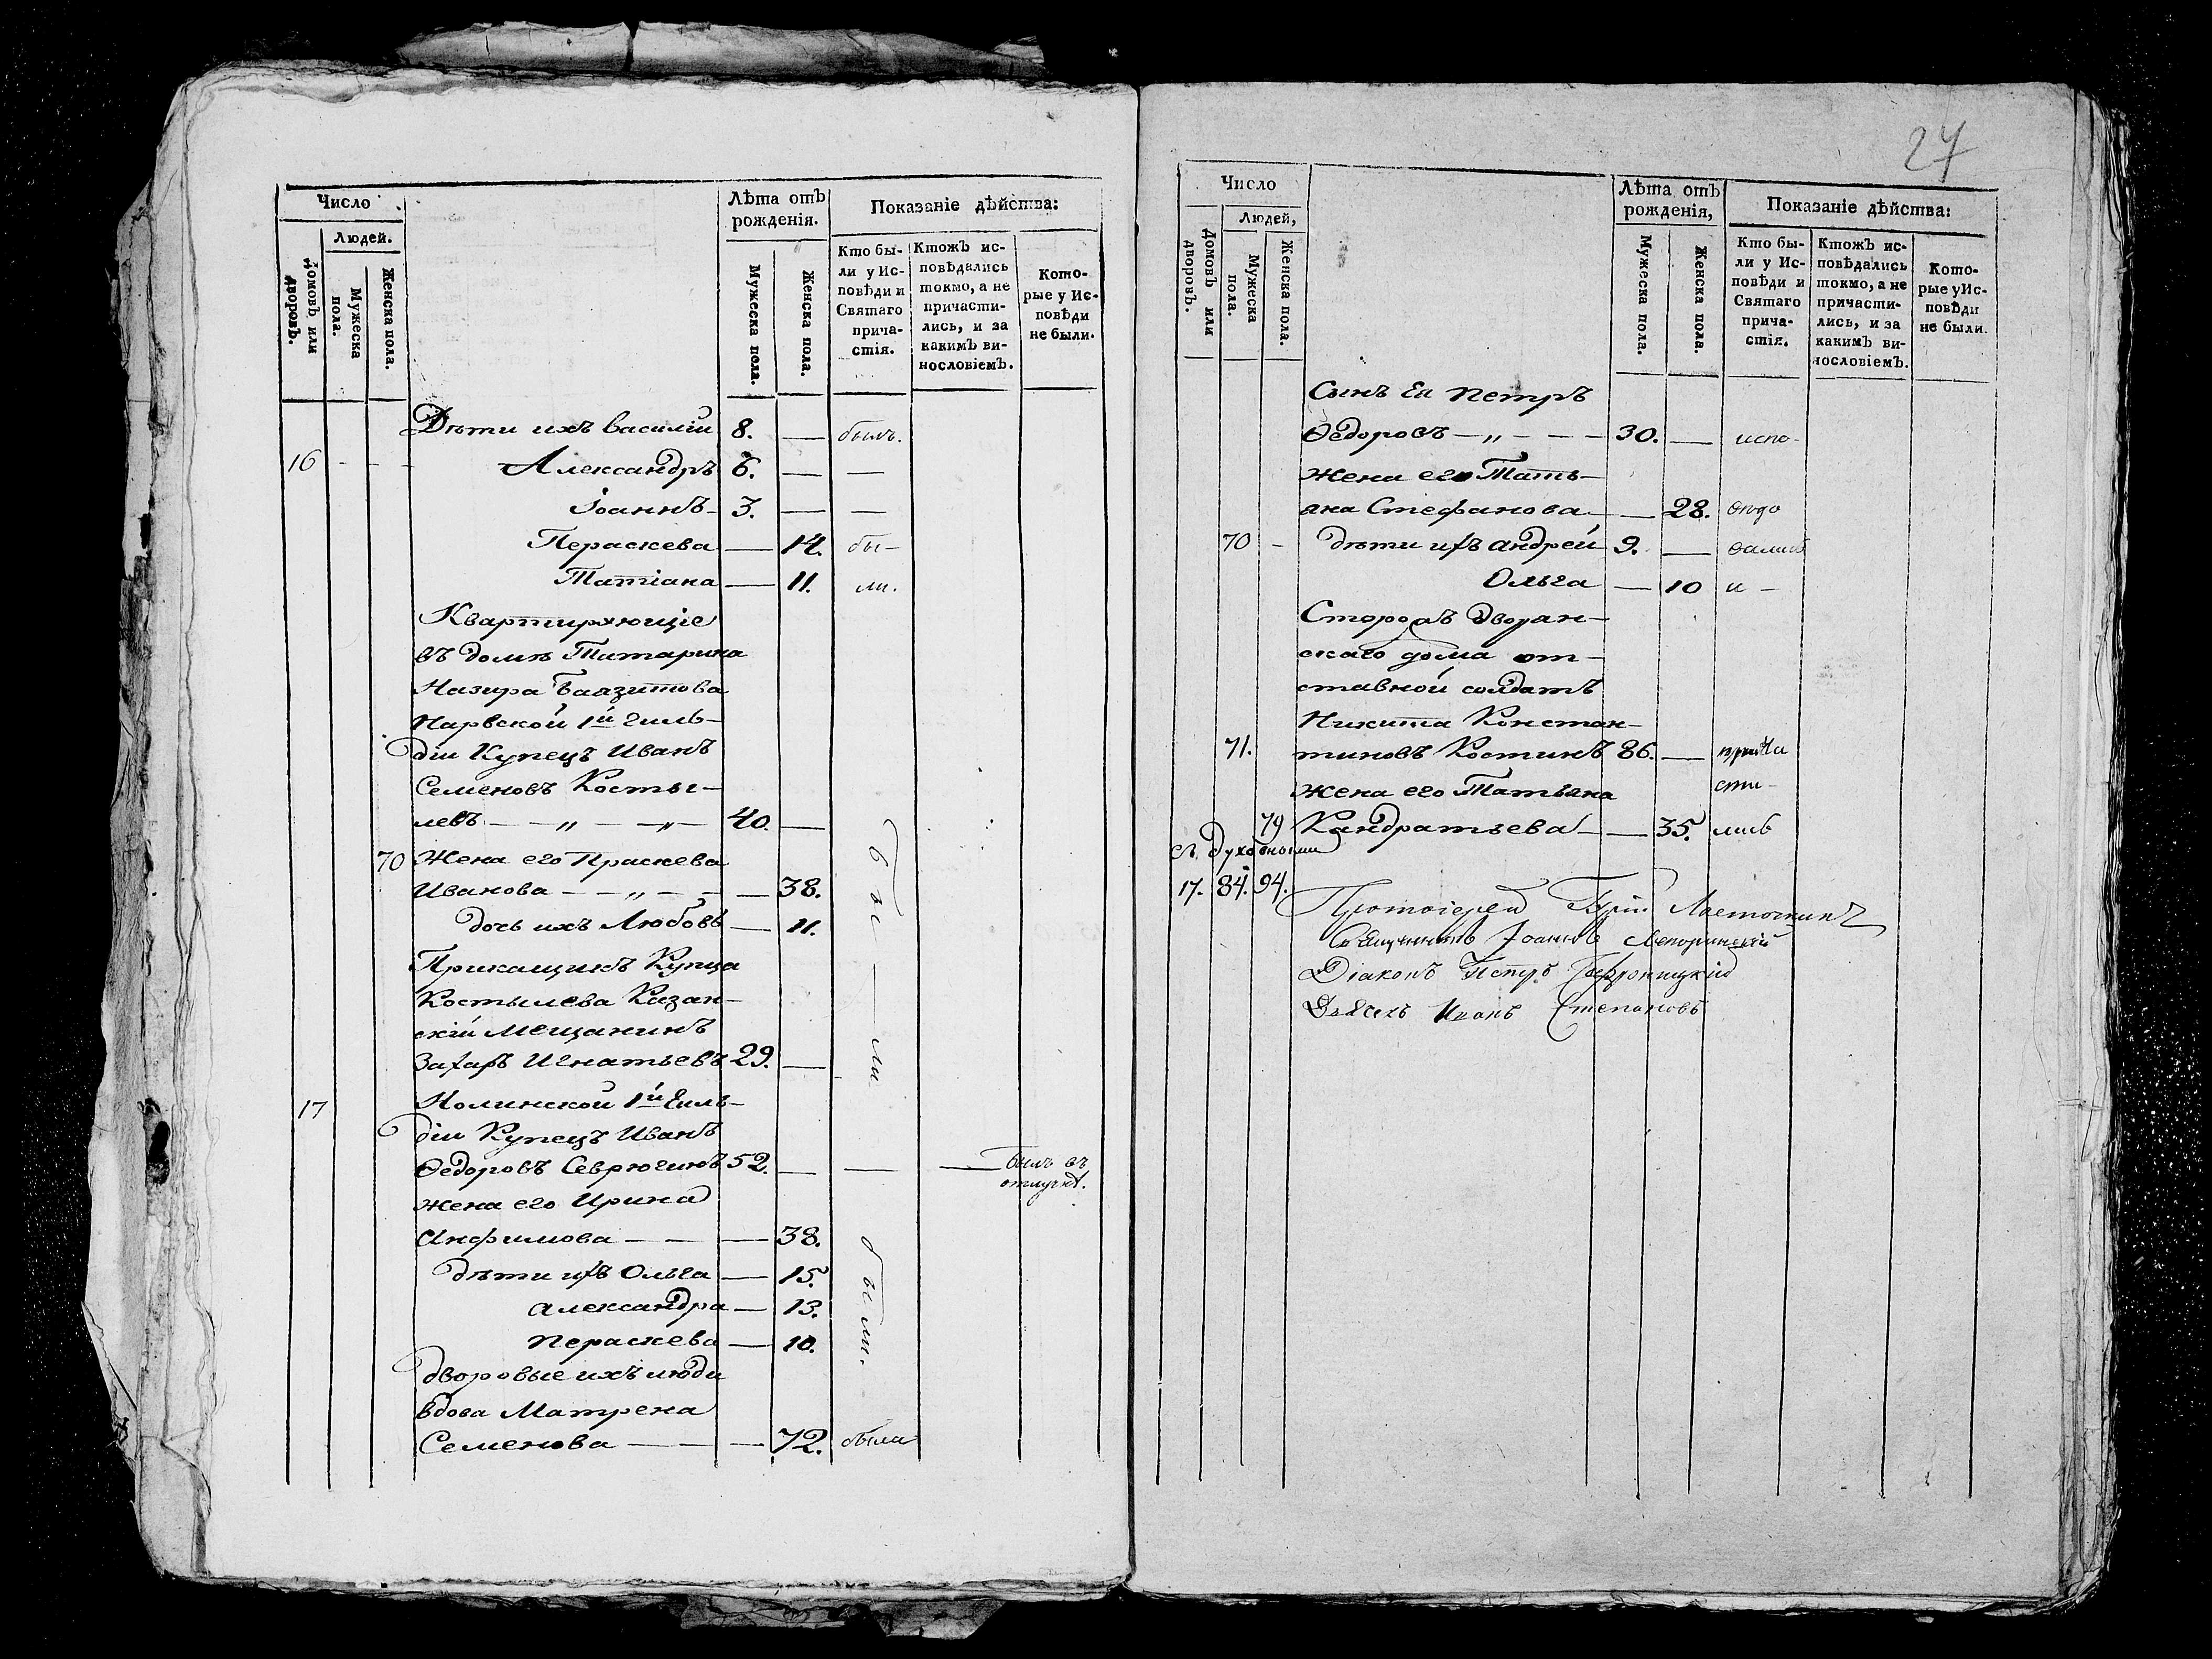 Число
Людей.
Домовъ или дворовъ.
Мужеска пола.
Женска пола.
Лѣта отъ рожденія.
Мужеска пола.
Женска пола.
Показаніе дѣйства:
Кто бы-
ли у Ис-
повѣди и
Святаго
прича-
стія.
Ктожъ ис-
повѣдались
токмо, а не
причасти-
лись, и за
какимъ ви-
нословіемъ.
Кото-
рые у Ис-
повѣди
не были.
Дѣти ихъ Василій 8. — былъ.
16 - - - Александръ 6. — —
Іоаннъ - 3. — —
Пераскева — 14. бы-
Татіана — 11. ли.
Квартирующіе
въ домѣ Татарина
Назира Баязитова
Нарвской 1й гиль-
діи Купецъ Иванъ
Семеновъ Косты-
левъ — — „ — „ — 40. —
70 Жена его Праскева
Иванова — — „ — — — 38.
дочь ихъ Любовь — 11.
бы — ли
Прикащикъ Купца
Костылева Казан-
скій мещанинъ
Захаръ Игнатьевъ 29. —
17 Нолинской 1й гиль-
діи Купецъ Иванъ
Ѳедоровъ Севрюгинъ 52. — — — былъ въ
отлучкѣ.
жена его Ирина
Анфимова — — — 38.
дѣти ихъ Ольга — 15.
Александра — 13.
Пераскева — 10.
были.
дворовые ихъ люди
вдова Матрена
Семенова — — — 72. была
27
Число
Людей,
Домовъ или дворовъ.
Мужеска пола.
Женска пола.
Лѣта отъ рожденія,
Мужеска пола.
Женска пола.
Показаніе дѣйства:
Кто бы-
ли у Ис-
повѣди и
Святаго
прича-
стія.
Ктожъ ис-
повѣдались
токмо, а не
причасти-
лись, и за
какимъ ви-
нословіемъ.
Кото-
рые у Ис-
повѣди
не были.
Сынъ Ея Петръ
Ѳедоровъ — „ — — — 30. — испо-
жена его Тать-
яна Стефанова — — 28. вѣдо
70 - дѣти ихъ Андрей 9. — вались
Ольга — 10 и —
Сторожъ Дворян-
скаго дома от-
ставной солдатъ
Никита Констан-
71. тиновъ Костинъ 86. — прича
жена его Татьяна сти-
79 Кандратьева — — 35. лись
съ духовными
17. 84. 94.
Протоіерей Ласточкинъ
Священникъ Іоаннъ
Діаконъ Петръ
Дьячекъ Иванъ Степановъ